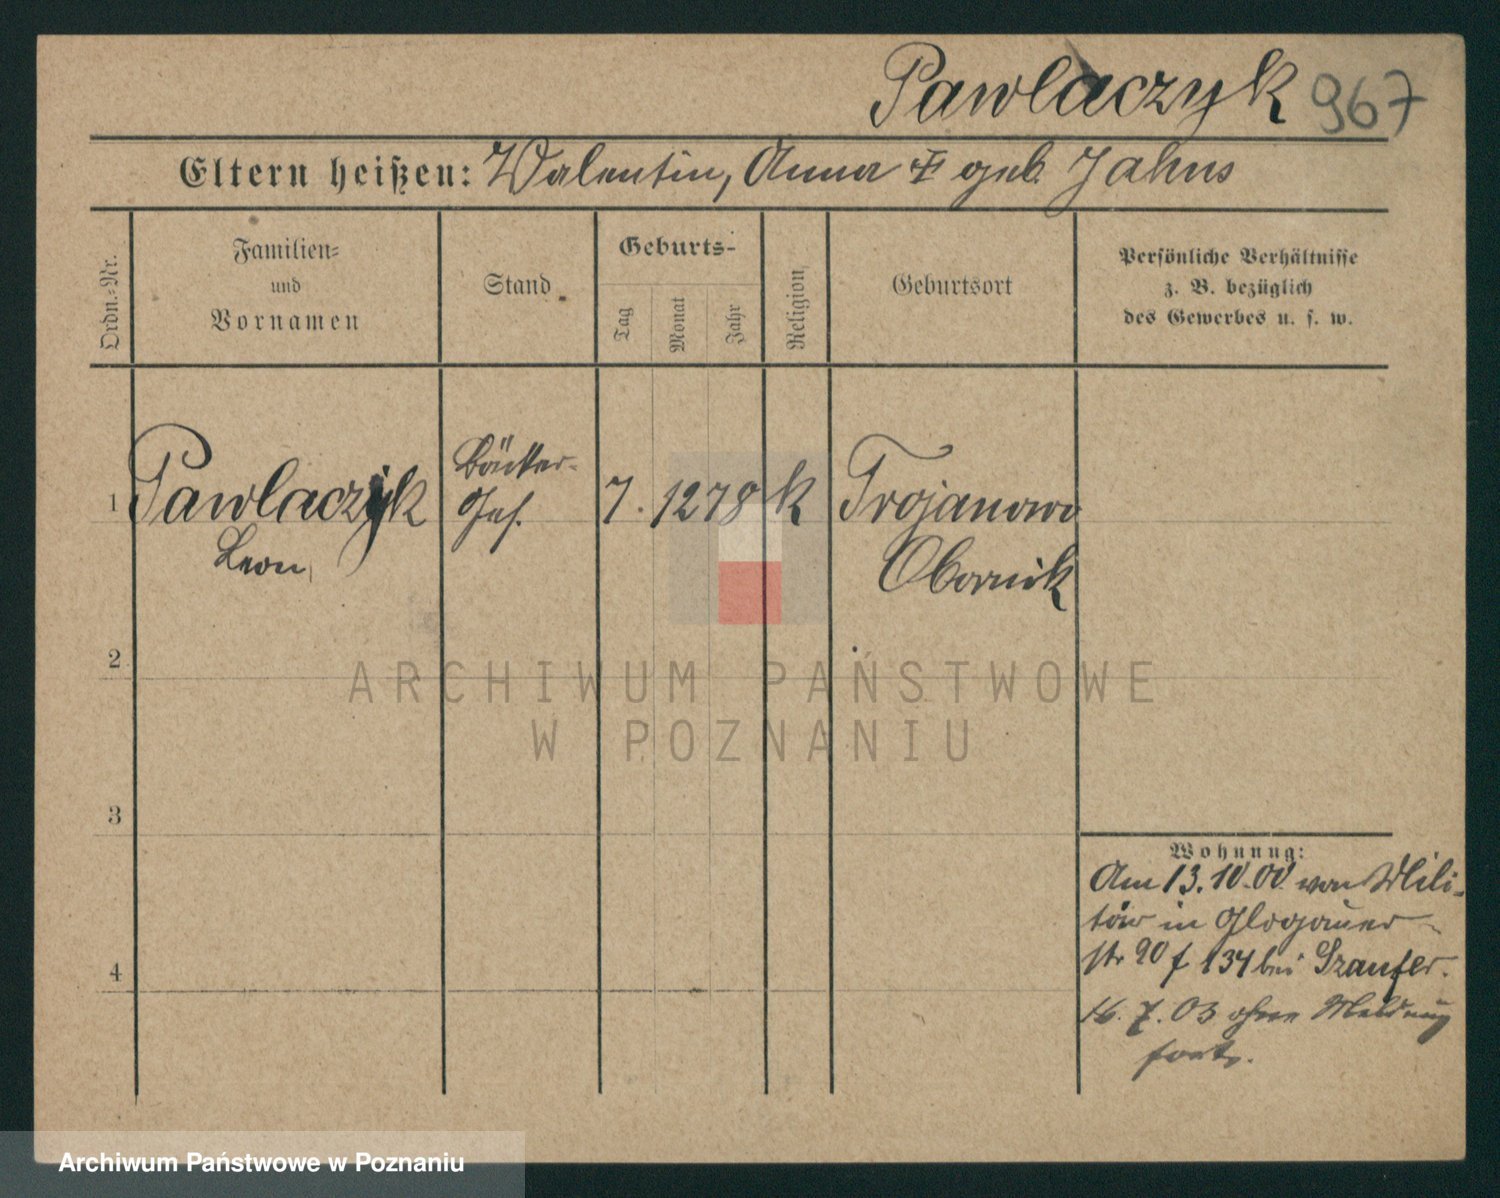 Pawlaczyk 967
Eltern heißen: Walentin, Anna geb. Jahns
Ordn.-Nr.
Familien-
und
Vornamen
Stand
Geburts-
Tag
Monat
Jahr
Religion
Geburtsort
Persönliche Verhältnisse
z. B. bezüglich
des Gewerbes u. s. w.
1 Pawlaczyk Bäcker- 7. 12 78 k Trojanowo
Leon Ges. Obornik
2
ARCHIWUM PAŃSTWOWE
W POZNANIU
3
Wohnung:
Am 13.10.00 von Mili-
tär in Glogauer
str 90 f 134 bei
4
16. 7. 03 ohne Meldung
forts.
Archiwum Państwowe w Poznaniu